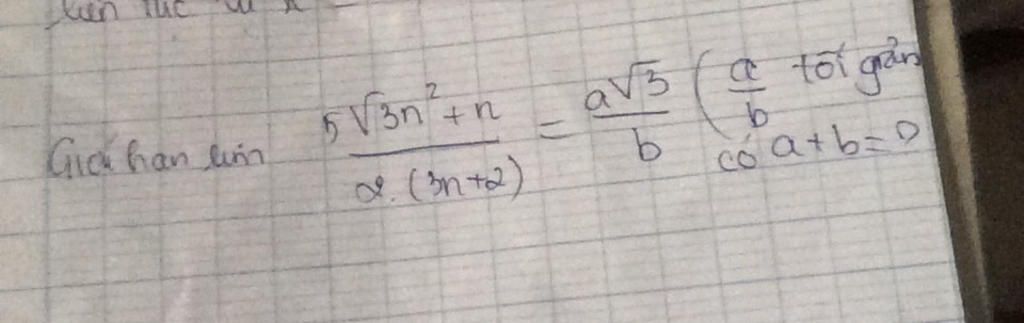 Giới hạn lim 5√3n²+n / 2.(3n+2) = a√3 / b ( a/b tối giản
có a+b=0